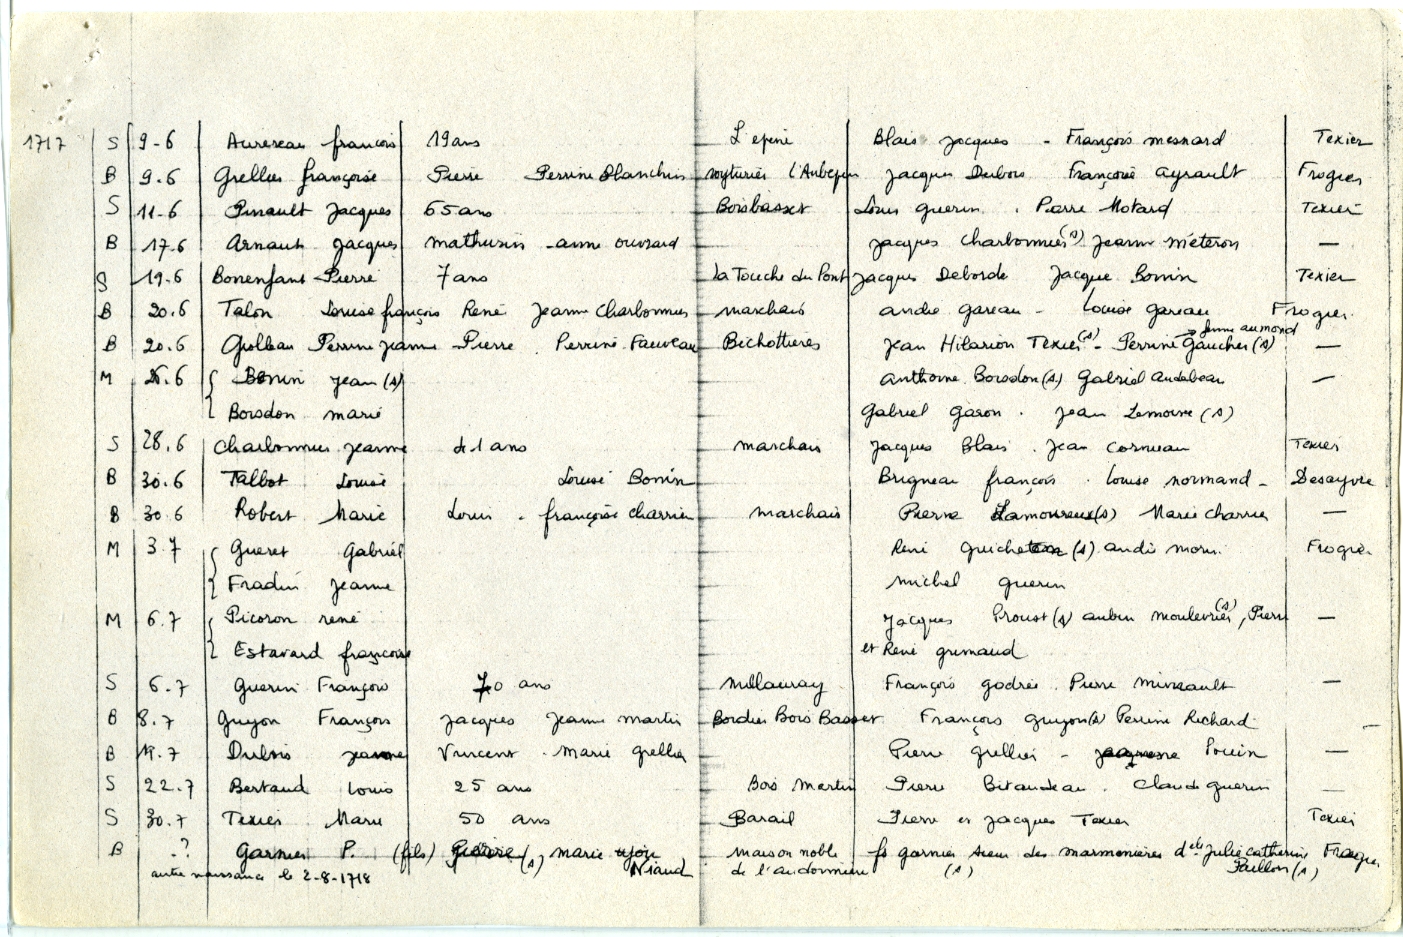 1717 S 9-6 Auvereau françois 19 ans L'epine Blais Jacques - François mesnard Texier
B 9.6 Grellier françoise Pierre Perrine Blanchin voyturier l'Aubepin Jacques Dubois Françoise Ayrault Frogier
S 11-6 Pinault Jacques 65 ans Boisbasset Louis guerin . Pierre Motard Texier
B 17.6 Arnaut Jacques mathurin - anne ouvrard Jacques Charbonnier (s) Jeanne méteron —
S 19.6 Bonenfant Pierre 7 ans La Touche du Pont Jacques Deborde Jacque Bonin Texier
B 20.6 Talon Louise françois René Jeanne Charbonnier marchais andre gareau - Louise gareau Frogier
B 20.6 Grolleau Perrine Jeanne Pierre . Perrine Fauveau Bichottières Jean Hilarion Texier (s) - Perrine Gaucher (s) femme aumond —
M 26.6 { Bonin Jean (s) Anthoine Boisdon (s) Gabriel Audebeau —
Boisdon marie Gabriel gason . Jean Lemoine (s)
S 28.6 Charbonnier Jeanne de 1 ans marchais Jacques Blais . Jean Corneau Texier
B 30.6 Talbot Louise Louise Bonin Brigneau françois . Louise normand - Desayvre
B 30.6 Robert Marie Louis - françoise charrier marchais Pierre Lamoureux (s) Marie charrier —
M 3.7 { Gueret Gabriel René guicheton (s) andé morin Frogier
Fradin Jeanne michel guerin
M 6.7 { Picoron rené Jacques Proust (s) aubin moulevrier (s), Pierre —
Estavard françoise et René grimaud
S 6.7 Guerin François 70 ans millauray François godrée . Pierre mineault —
B 8.7 Guyon François Jacques Jeanne martin Bordier Bois Basset François guyon (s) Perrine Richard —
B 19.7 Dubois Jeanne Vincent - Marie grellier Pierre grellier - Poicin —
S 22.7 Bertaud Louis 25 ans Bois martin Pierre Bitaudeau . Claude guerin —
S 30.7 Texier Marie 50 ans Barail Pierre et Jacques Texier Texier
B .? Garnier P. (fils) Pierre (s) marie Niaud maison noble fs garnier sieur des marmonières delle Julie catherine Frogier
autre naissance le 2-8-1718 de l'audonnière (s) Paillon (s)